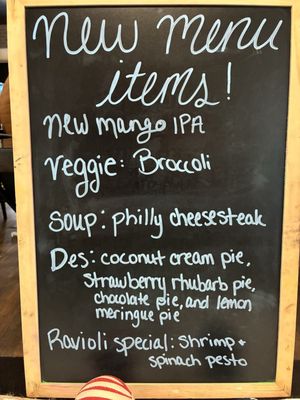 New Menu
items!
New mango IPA
Veggie: Broccoli
Soup: philly cheesesteak
Des: coconut cream pie,
Strawberry rhubarb pie,
chocolate pie, and lemon
meringue pie
Ravioli special: Shrimp +
spinach pesto